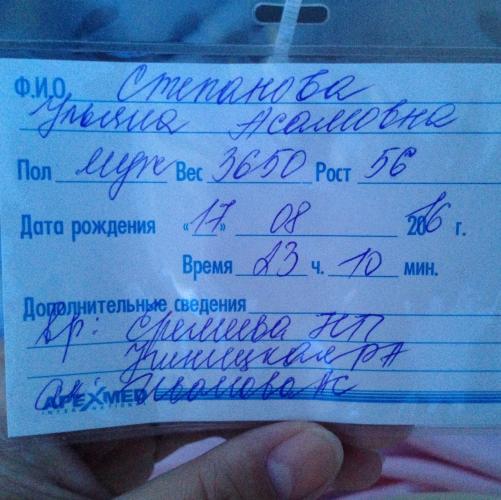 Ф.И.О. Степанова
Ульяна Асамовна
Пол муж Вес 3650 Рост 56
Дата рождения «17» 08 2016 г.
Время 23 ч. 10 мин.
Дополнительные сведения
Вр: Еремеева НП
РА
Иванова АС
APEXMED
INTERNATIONAL